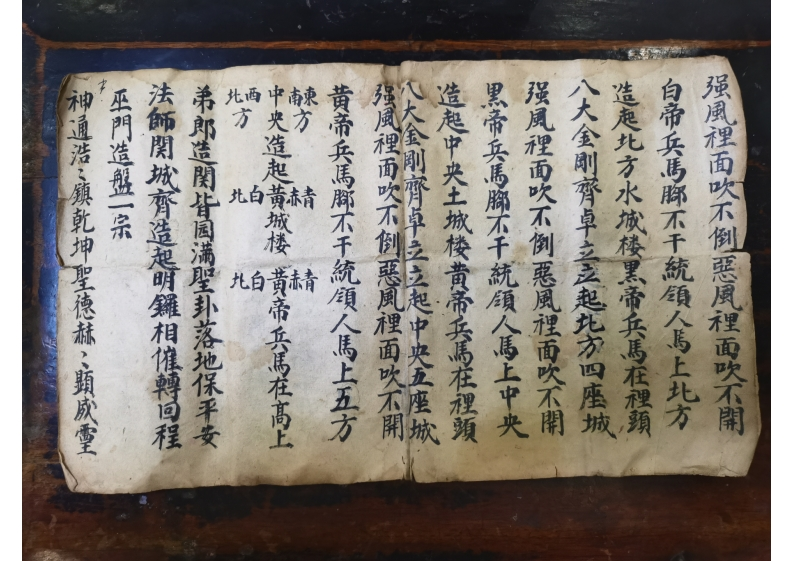 强風裡面吹不倒惡風裡面吹不開
白帝兵馬腳不干統領人馬上北方
造起北方水城楼黑帝兵馬在裡頭
八大金剛齊卓立立起北方四座城
强風裡面吹不倒惡風裡面吹不開
黑帝兵馬腳不干統領人馬上中央
造起中央土城楼黄帝兵馬在裡頭
八大金剛齊卓立立起中央五座城
强風裡面吹不倒惡風裡面吹不開
黄帝兵馬腳不干統領人馬上五方
東方 青 青
南 赤 赤
中央造起黄城楼黄帝兵馬在高上
西 白 白
北方 北 北
弟郎造関皆园满聖卦落地保平安
法師関城齊造起明鑼相催轉回程
巫門造盤一宗
神通浩〻鎮乾坤聖德赫〻顕威靈